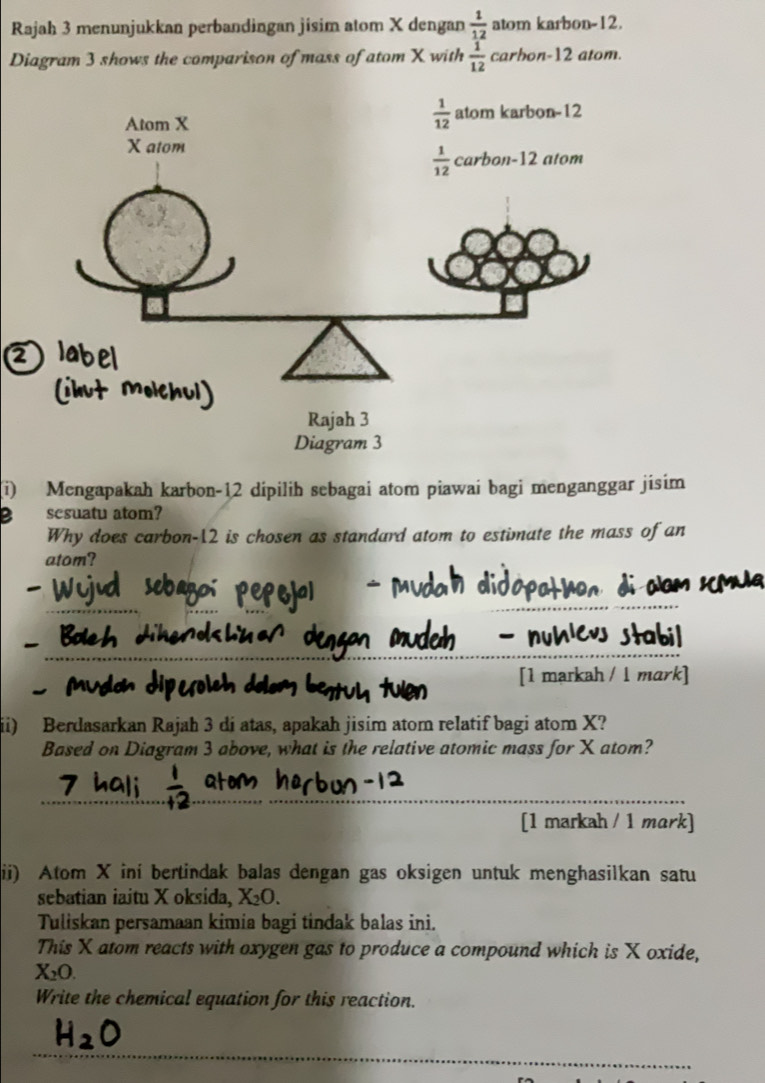 Rajah 3 menunjukkan perbandingan jisim atom X dengan 1/12 atom karbon-12.
Diagram 3 shows the comparison of mass of atom X with 1/12 carbon-12 atom.
Atom X
X atom
1/12 atom karbon-12
1/12 carbon-12 atom
② label
(ikut molekul)
Rajah 3
Diagram 3
i) Mengapakah karbon-12 dipilih sebagai atom piawai bagi menganggar jisim
sesuatu atom?
Why does carbon-12 is chosen as standard atom to estimate the mass of an
atom?
- Wujud sebagai pepejal - mudah didapatkan di alam semula
- Boleh dikendalikan dengan mudah - nukleus stabil
[1 markah / 1 mark]
- mudah diperoleh dalam bentuk tulen
ii) Berdasarkan Rajah 3 di atas, apakah jisim atom relatif bagi atom X?
Based on Diagram 3 above, what is the relative atomic mass for X atom?
7 kali 1/12 atom karbon-12
[1 markah / 1 mark]
ii) Atom X ini bertindak balas dengan gas oksigen untuk menghasilkan satu
sebatian iaitu X oksida, X₂O.
Tuliskan persamaan kimia bagi tindak balas ini.
This X atom reacts with oxygen gas to produce a compound which is X oxide,
X₂O.
Write the chemical equation for this reaction.
H₂O